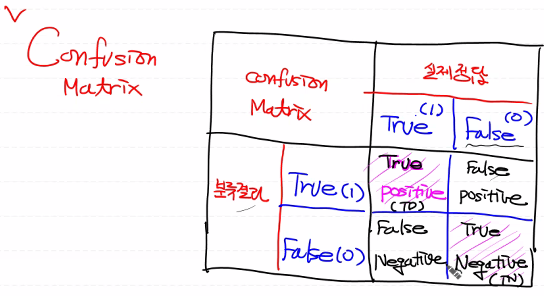 ✓
Confusion
Matrix
Confusion
Matrix
실제정답
True (1)
False (0)
분류결과
True (1)
True
positive
(TP)
False
positive
False (0)
False
Negative
True
Negative
(TN)